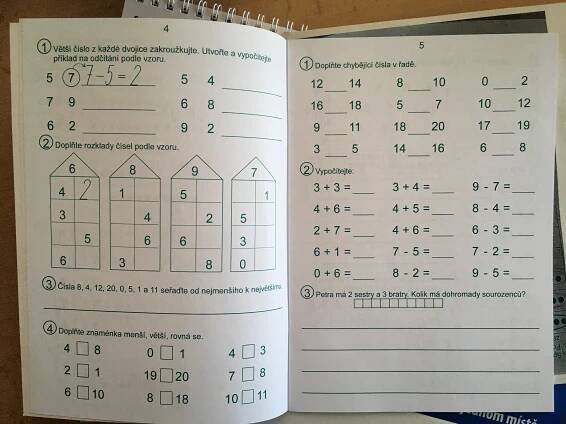 4
1 Větší číslo z každé dvojice zakroužkujte. Utvořte a vypočítejte
příklad na odčítání podle vzoru.
5 7 7-5=2 5 4 ____
7 9 ____ 6 8 ____
6 2 ____ 9 2 ____
2 Doplňte rozklady čísel podle vzoru.
6 8 9 7
4 2 1 5 1
3 4 2 5
5 6 6 3
6 3 8 0
3 Čísla 8, 4, 12, 20, 0, 5, 1 a 11 seřaďte od nejmenšího k největšímu.
4 Doplňte znaménka menší, větší, rovná se.
4 □ 8 0 □ 1 4 □ 3
2 □ 1 19 □ 20 7 □ 8
6 □ 10 8 □ 18 10 □ 11
5
1 Doplňte chybějící čísla v řadě.
12 ___ 14 8 ___ 10 0 ___ 2
16 ___ 18 5 ___ 7 10 ___ 12
9 ___ 11 18 ___ 20 17 ___ 19
3 ___ 5 14 ___ 16 6 ___ 8
2 Vypočítejte:
3 + 3 = ___ 3 + 4 = ___ 9 - 7 = ___
4 + 6 = ___ 4 + 5 = ___ 8 - 4 = ___
2 + 7 = ___ 4 + 6 = ___ 6 - 3 = ___
6 + 1 = ___ 7 - 5 = ___ 7 - 2 = ___
0 + 6 = ___ 8 - 2 = ___ 9 - 5 = ___
3 Petra má 2 sestry a 3 bratry. Kolik má dohromady sourozenců?
jednom místě